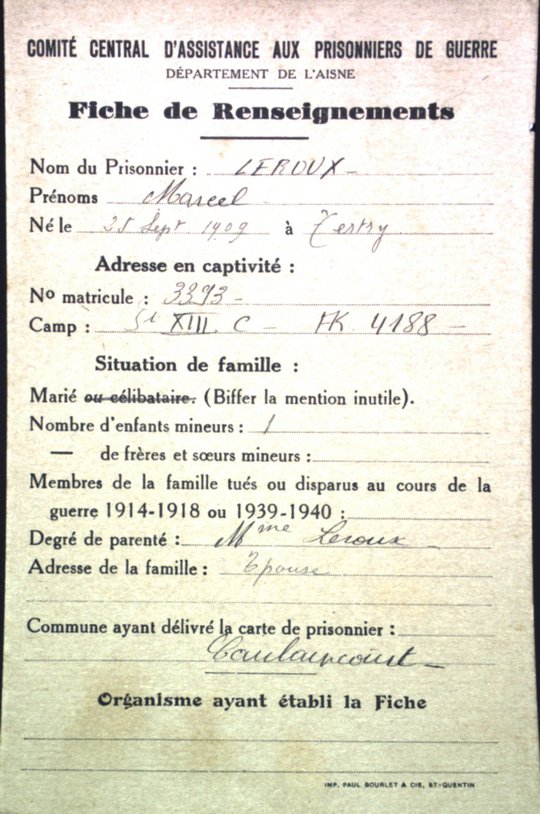 COMITÉ CENTRAL D'ASSISTANCE AUX PRISONNIERS DE GUERRE
DÉPARTEMENT DE L'AISNE
Fiche de Renseignements
Nom du Prisonnier : LEROUX
Prénoms Marcel
Né le 25 Sept 1909 à Tertry
Adresse en captivité :
No matricule : 3393
Camp : St XIII C FK 4188
Situation de famille :
Marié ou célibataire. (Biffer la mention inutile).
Nombre d'enfants mineurs : 1
— de frères et sœurs mineurs :
Membres de la famille tués ou disparus au cours de la
guerre 1914-1918 ou 1939-1940 :
Degré de parenté : Mme Leroux
Adresse de la famille : Epouse
Commune ayant délivré la carte de prisonnier :
Caulaincourt
Organisme ayant établi la Fiche
IMP. PAUL BOURLET & CIE, ST-QUENTIN